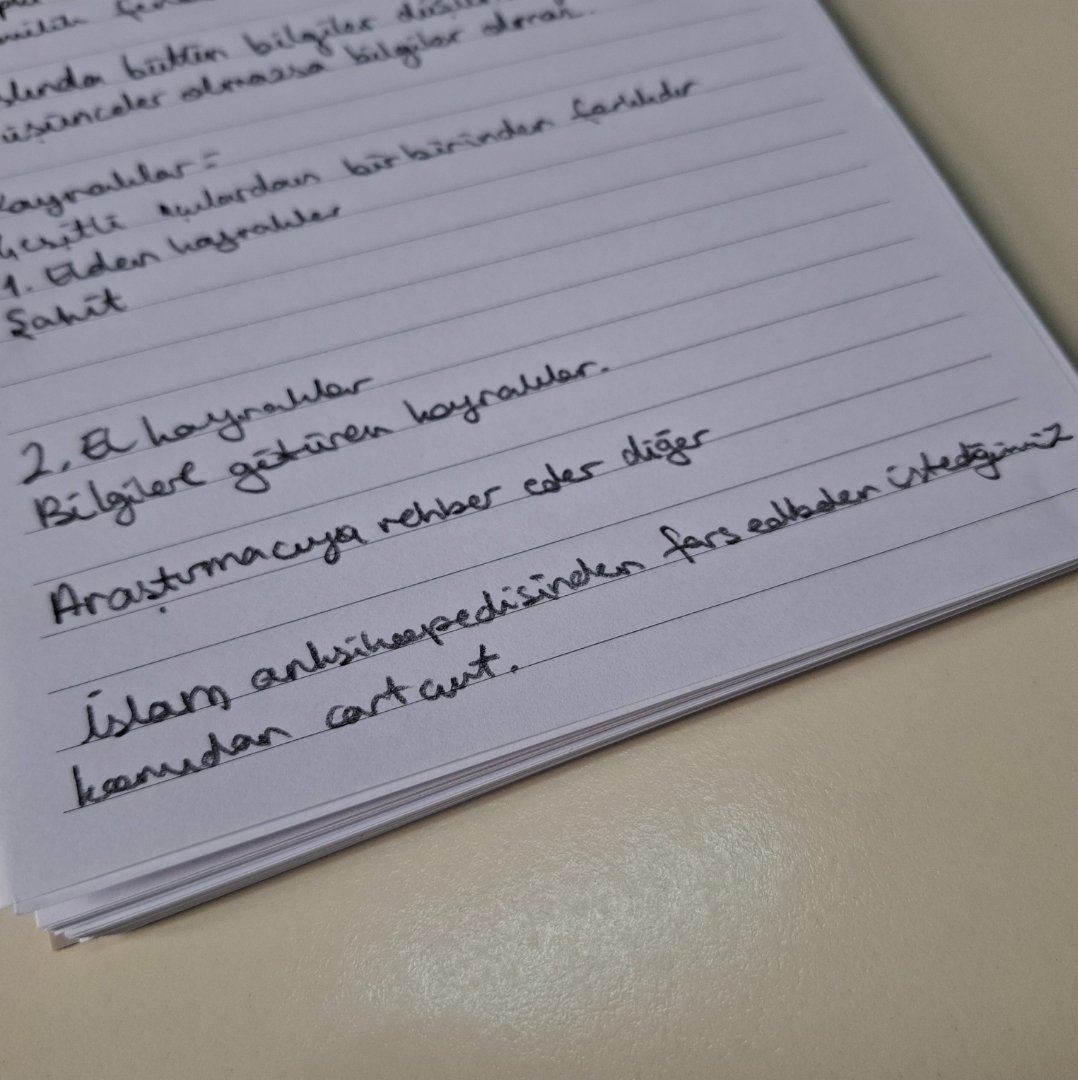 bütün bilgiler
olmazsa bilgiler olmaz.
Kaynaklar =
Çeşitli açılardan birbirinden farklıdır
1. Elden kaynaklar
Şahit
2. El kaynaklar
Bilgilere götüren kaynaklar.
Araştırmacıya rehber eder diğer
İslam ansiklopedisinden istediğimiz
konudan cart curt.